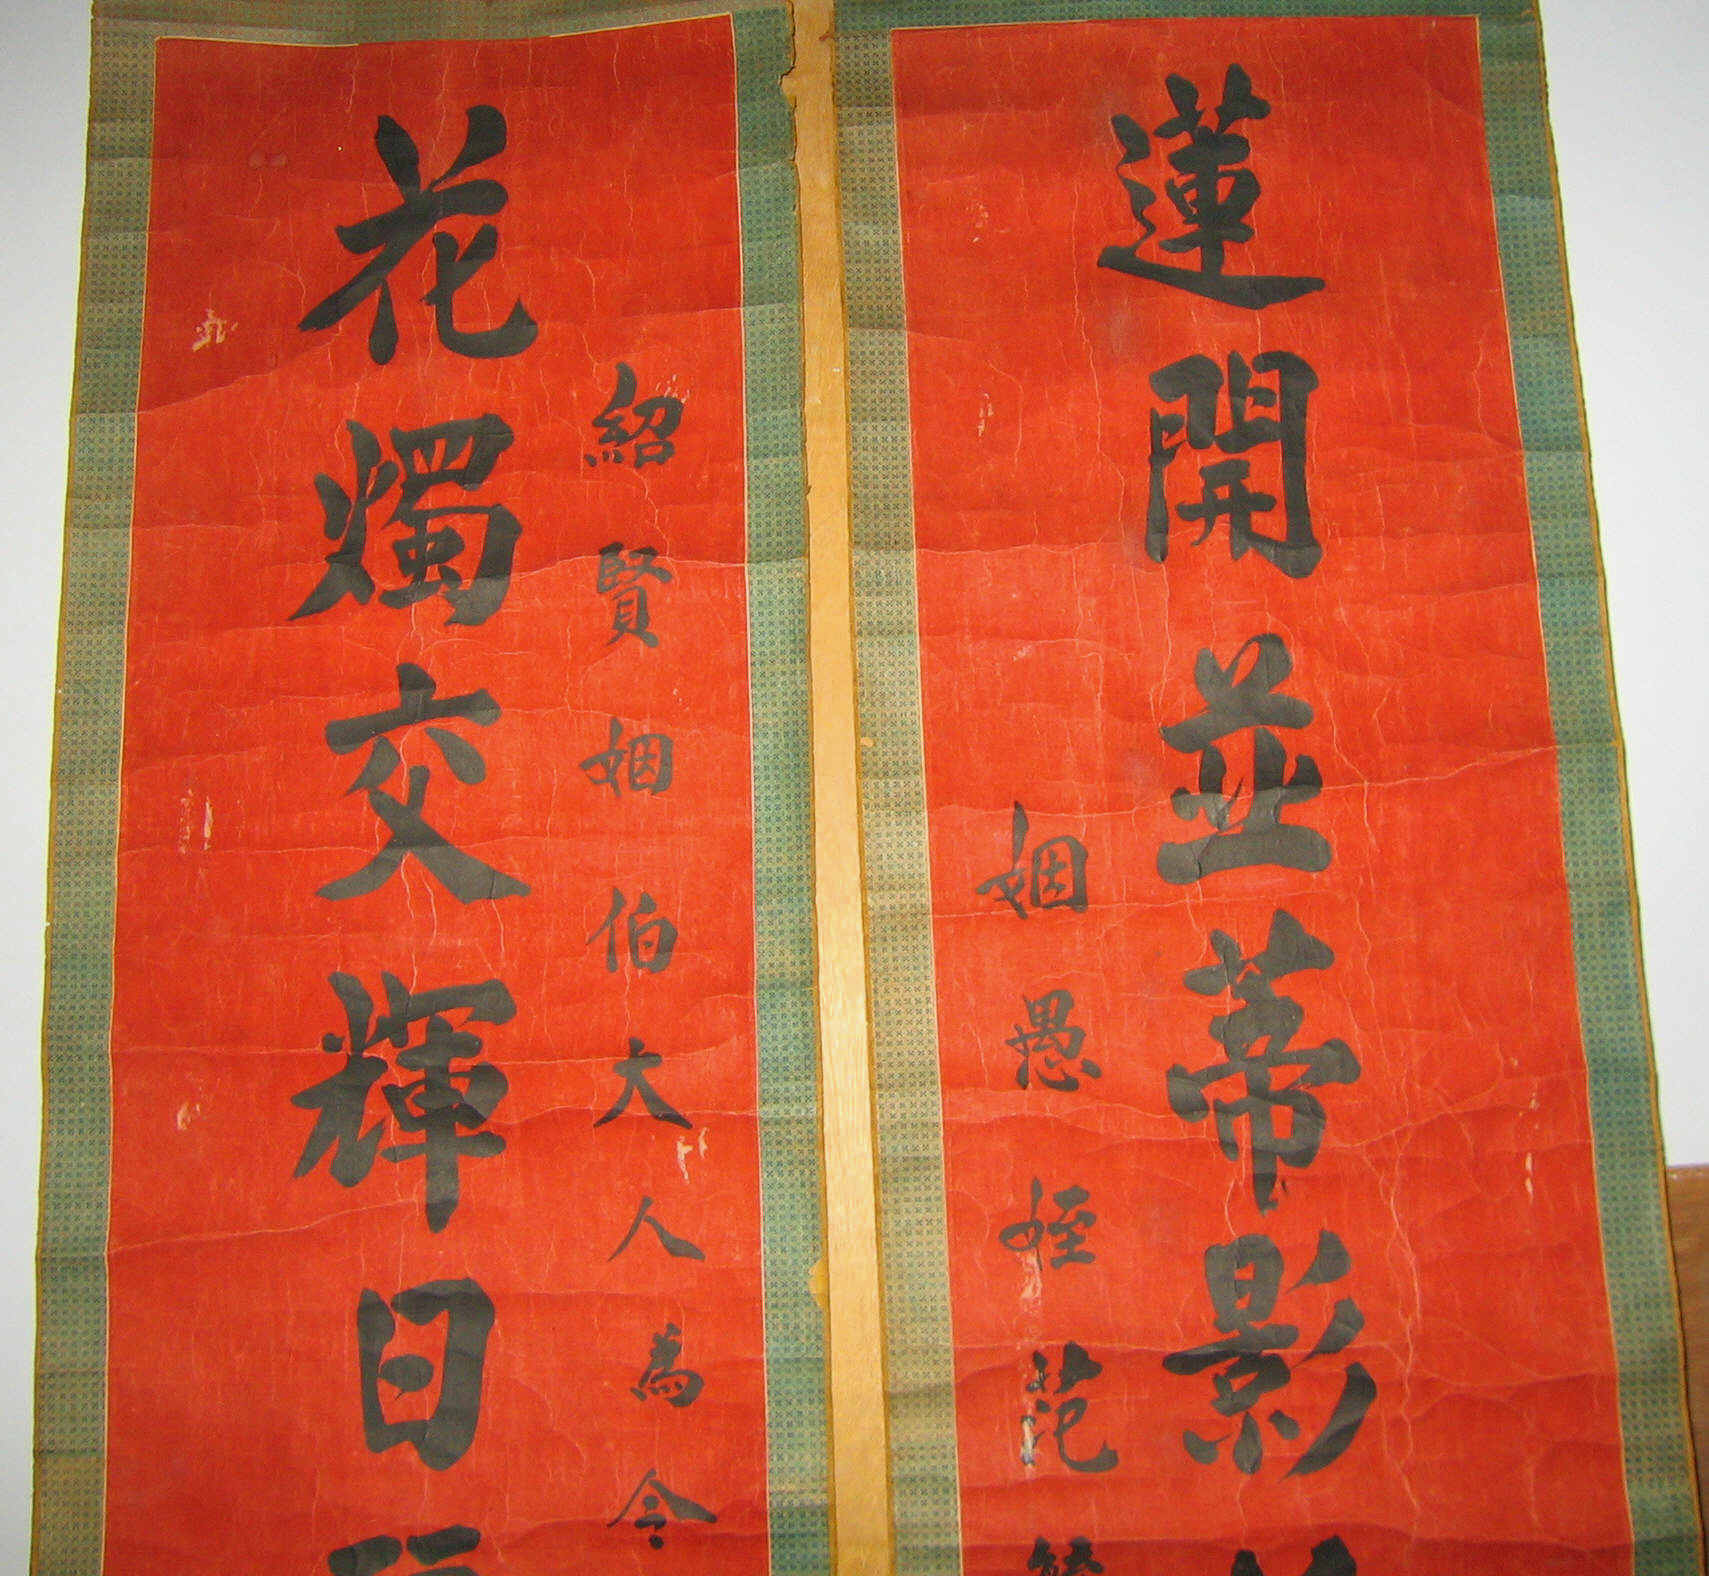 蓮開並蒂影
姻愚姪范
紹賢姻伯大人為令
花燭交輝日